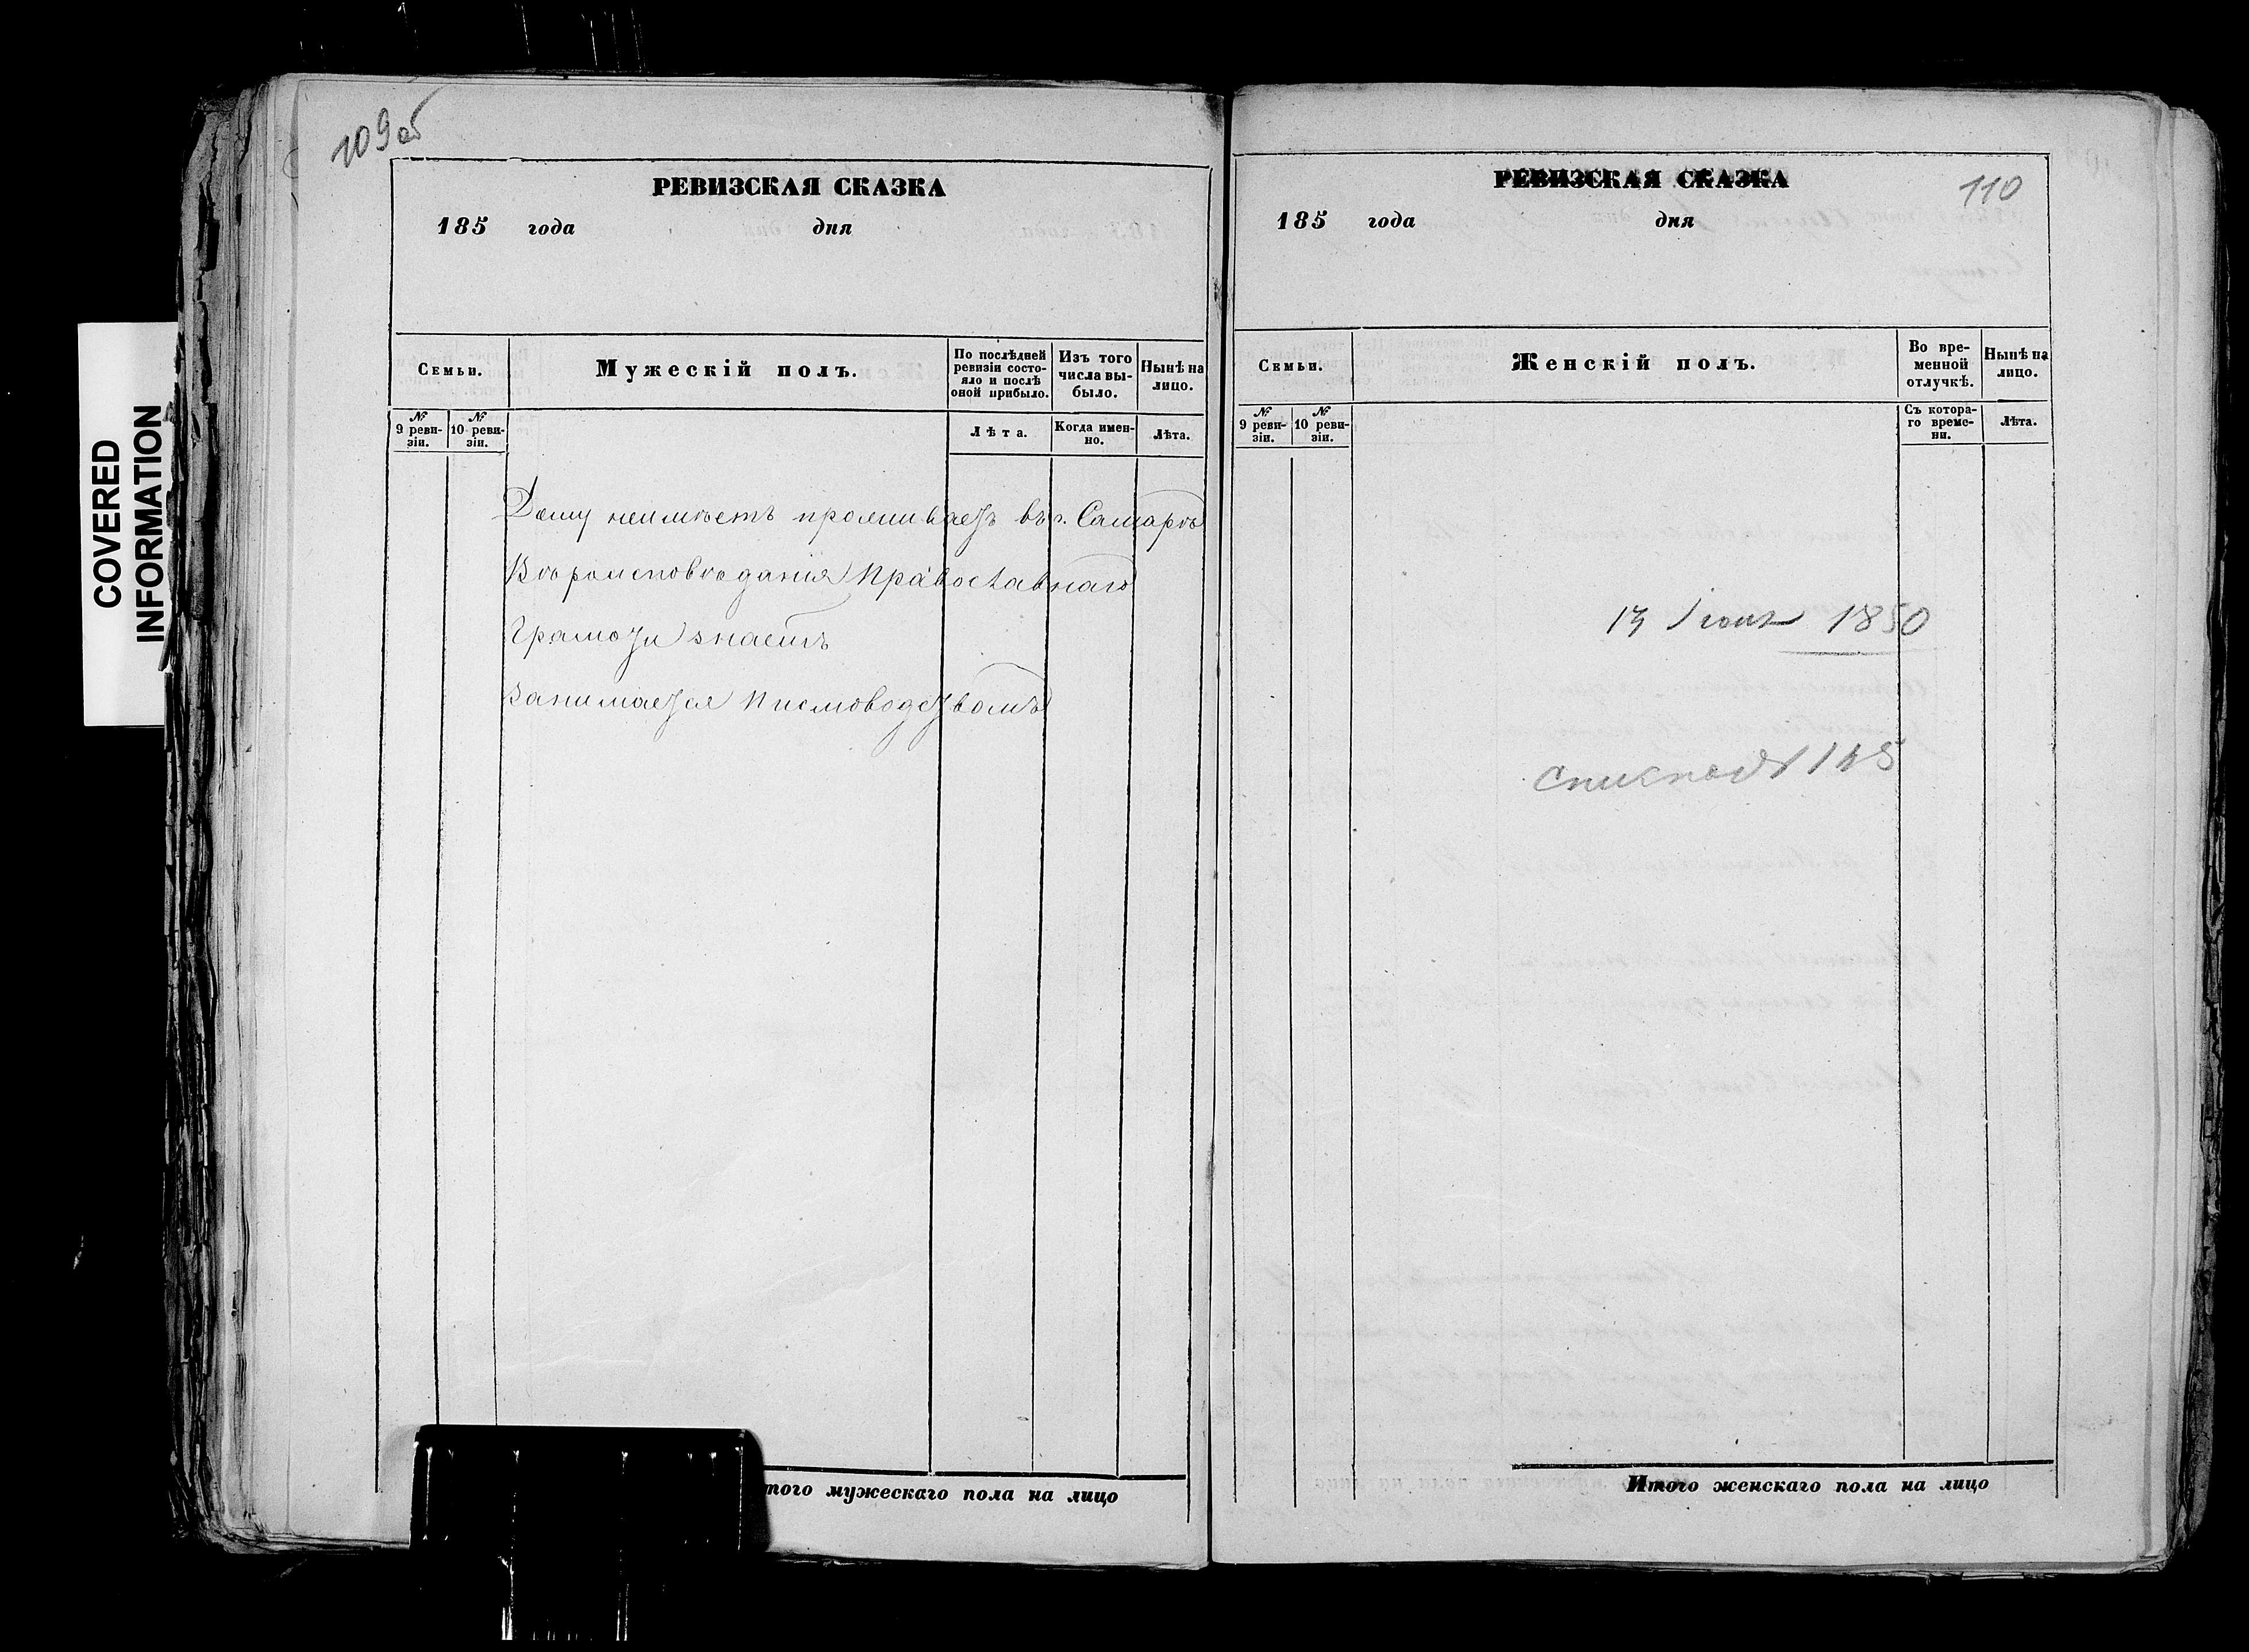 COVERED
INFORMATION
109об
РЕВИЗСКАЯ СКАЗКА
185 года дня
Семьи.
Мужескій полъ.
По послѣдней
ревизіи состо-
яло и послѣ
оной прибыло.
Изъ того
числа вы-
было.
Нынѣ на
лицо.
№
9 реви-
зіи.
№
10 реви-
зіи.
Лѣта.
Когда имен-
но.
Лѣта.
Дому неимѣетъ проживаетъ въ г. Самарѣ
Вѣроисповѣданія Православнаго
Грамоти знаетъ
Занимается писмоводствомъ
того мужескаго пола на лицо
РЕВИЗСКАЯ СКАЗКА
110
185 года дня
Семьи.
Женскій полъ.
Во вре-
менной
отлучкѣ.
Нынѣ на
лицо.
№
9 реви-
зіи.
№
10 реви-
зіи.
Съ котора-
го време-
ни.
Лѣта.
1850
Итого женскаго пола на лицо